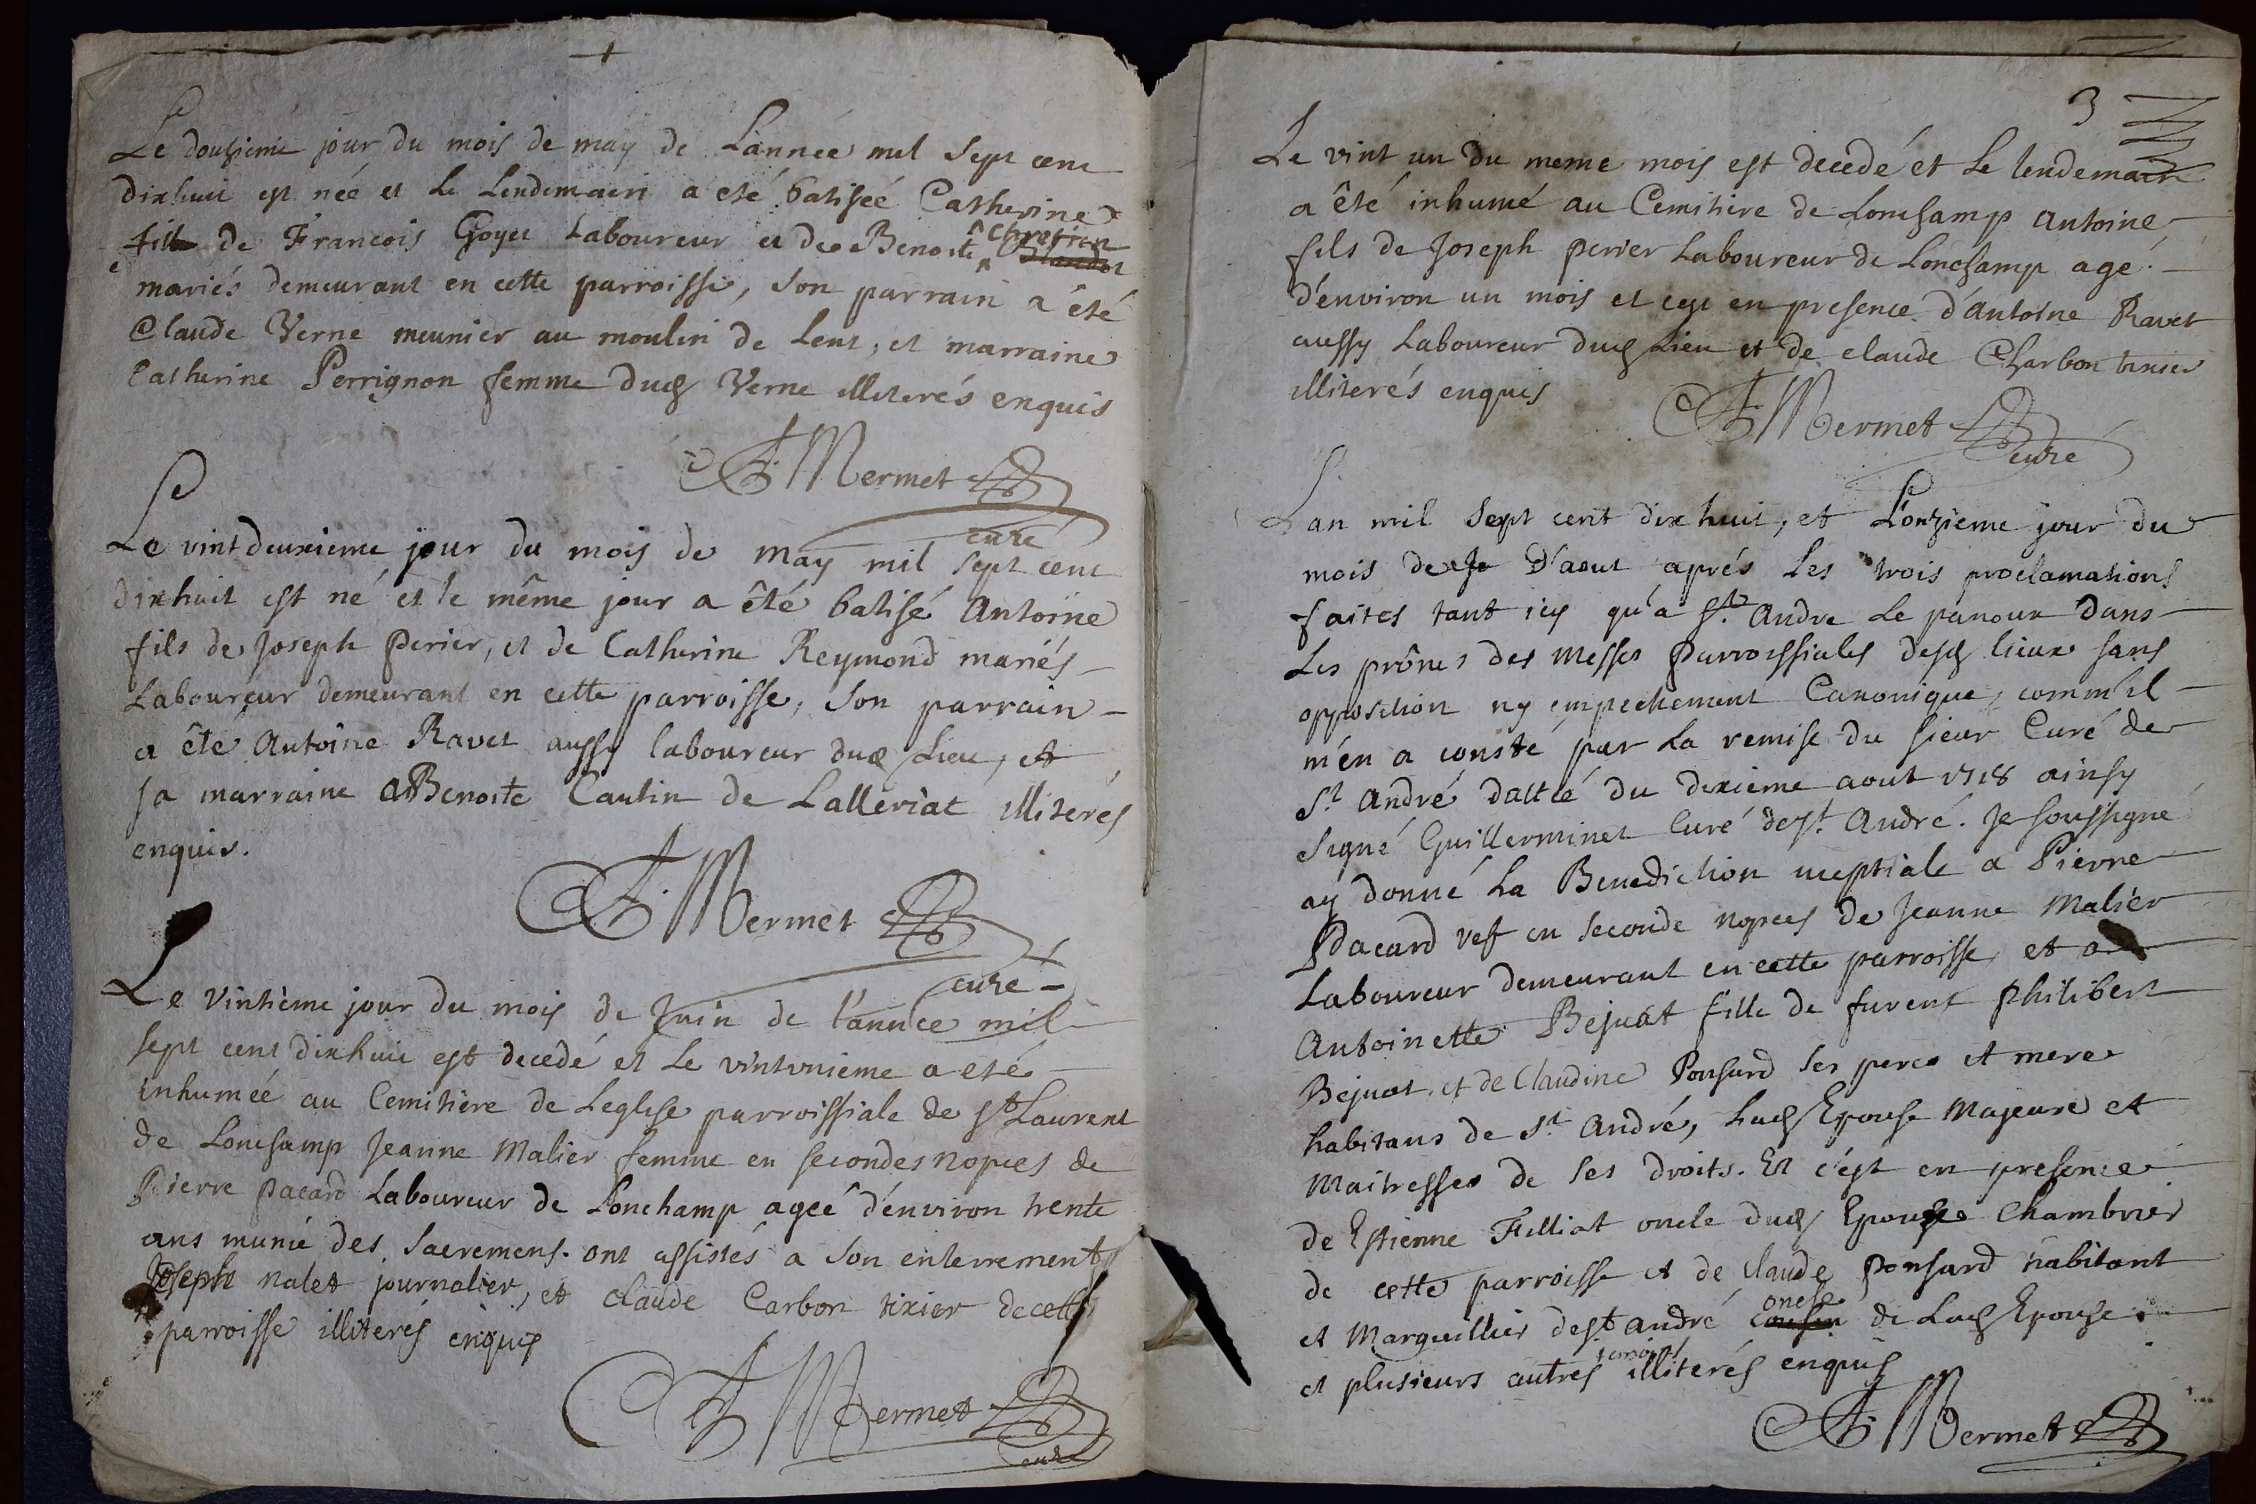 Le douzieme jour du mois de may de L'année mil sept cent
dixhuit est née et le Lendemain a eté batiseé Catherine
fille de Francois Goyet Laboureur et de Benoite Chretien
mariés demeurant en cette parroisse, son parrain a été
Claude Verne meunier au moulin de Lent, et marraine
Catherine Perrignon femme dud Verne illiterés enquis
A. Mermet
curé
Le vintdeuxieme jour du mois de may mil sept cent
dixhuit est né et le même jour a êté batisé Antoine
fils de Joseph Perier, et de Catherine Reymond mariés
Laboureur demeurant en cette parroisse, son parrain
a êté Antoine Ravet aussy laboureur dud Lieu, et
sa marraine Benoite Cautin de Lalleriat illiterés
enquis.
A. Mermet
curé
Le Vintième jour du mois de Juin de l'année mil
sept cent dixhuit est decedé et le vintunième a eté
inhumeé au Cemitière de Leglise parroissiale de St Laurent
de Lonchamp Jeanne Malier femme en secondes nopces de
Pierre Pacard Laboureur de Lonchamp ageé d'environ trente
ans munie des Sacremens. ont assistés a son enterrement
Joseph nalet journalier, et Claude Carbon tixier de cette
parroisse illiterés enquis
A. Mermet
curé
3
Le vint un du meme mois est decedé et le lendemain
a êté inhumé au Cemitière de Lonchamp Antoine
fils de Joseph Perier Laboureur de Lonchamp agé
d'environ un mois et cest en presence d'Antoine Ravet
aussy Laboureur dud Lieu et de claude Charbon tixier
illiterés enquis
A. Mermet
curé
Lan mil sept cent dixhuit, et L'onzieme jour du
mois de D'aout aprés Les trois proclamations
faites tant icy qu'a St. Andre Le panoux Dans
Les prônes des Messes Parroissiales desd lieux sans
opposition ny empechement Canonique, comm'il
m'en a consté par La remise du sieur Curé de
St André datteé du dixieme aout 1718 ainsy
signé Guillerminet Curé de St. André. Je soussigné
ay donné La Benediction nuptiale a Pierre
Pacard vef en seconde nopces de Jeanne Malier
Laboureur demeurant en cette parroisse et a
Antoinette Bejuat fille de furent Philibert
Bejuat et de Claudine Ponsard ses peres et mere
habitans de St André, Lad Epouse Majeure et
Maitresse de ses droits. Et c'est en presence
de Estienne Filliat oncle dud Epoux Chambrier
de cette parroisse et de Claude Ponsard habitant
et Marguillier de St André oncle cousin de Lad Epouse
et plusieurs autres temoins illiterés enquis
A. Mermet